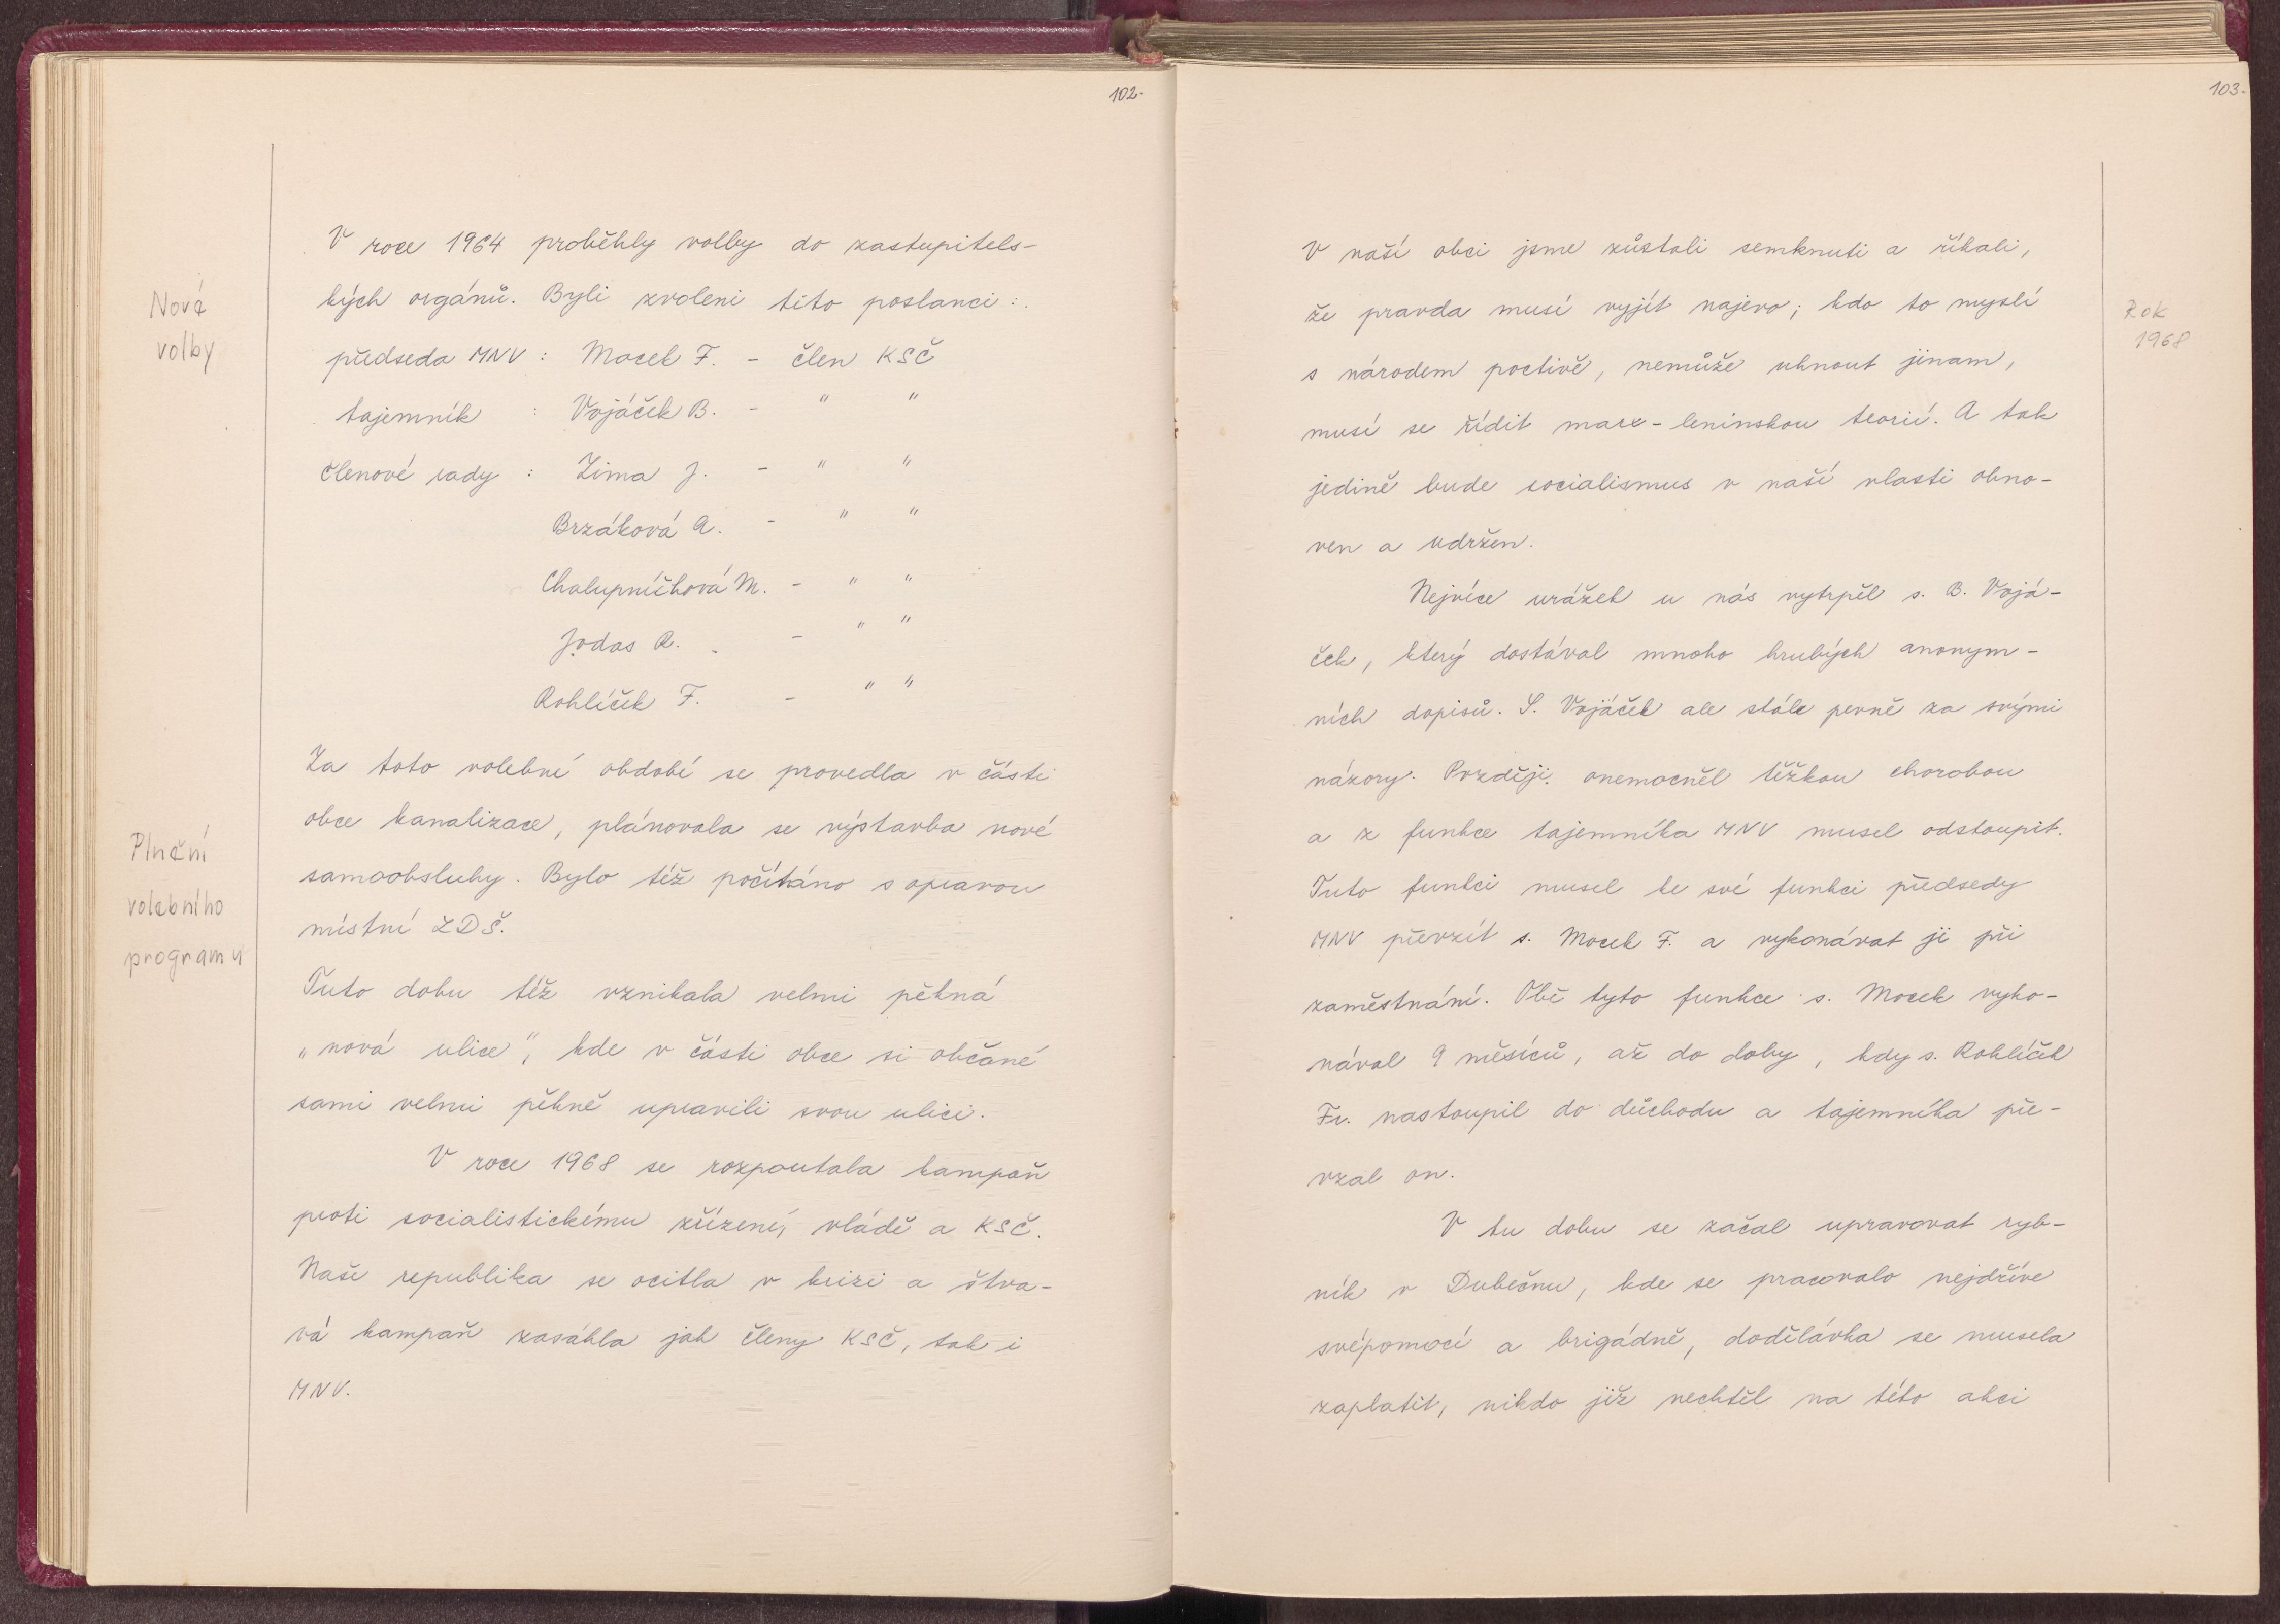 102.
Nová
volby
V roce 1964 proběhly volby do zastupitels-
kých orgánů. Byli zvoleni tito poslanci:.
předseda MNV : Macek F. - člen KSČ
tajemník : Vojáček B. - " "
Členové rady : Zima J. - " "
Brzáková A. - " "
Chalupníčková M. - " "
Jodas R. - " "
Rohlíček F. - " "
Za toto volební období se provedla v části
obce kanalizace, plánovala se výstavba nové
samoobsluhy. Bylo též počítáno s opravou
místní ZDŠ.
Plnění
volebního
programu
Tuto dobu též vznikala velmi pěkná
„nová ulice", kde v části obce si občané
sami velmi pěkně upravili svou ulici.
V roce 1968 se rozpoutala kampaň
proti socialistickému zřízení, vládě a KSČ.
Naše republika se ocitla v krizi a štva-
vá kampaň zasáhla jak členy KSČ, tak i
MNV.
103.
Rok
1968
V naší obci jsme zůstali semknuti a říkali,
že pravda musí vyjít najevo; kdo to myslí
s národem poctivě, nemůže uhnout jinam,
musí se řídit marx-leninskou teorií. A tak
jedině bude socialismus v naší vlasti obno-
ven a udržen.
Nejvíce urážek u nás vytrpěl s. B. Vojá-
ček, který dostával mnoho hrubých anonym-
ních dopisů. S. Vojáček ale stále pevně za svými
názory. Později onemocněl těžkou chorobou
a z funkce tajemníka MNV musel odstoupit.
Tuto funkci musel ke své funkci předsedy
MNV převzít s. Macek F. a vykonávat ji při
zaměstnání. Obě tyto funkce s. Macek vyko-
nával 9 měsíců, až do doby, kdy s. Rohlíček
Fr. nastoupil do důchodu a tajemníka pře-
vzal on.
V tu dobu se začal upravovat ryb-
ník v Dubečnu, kde se pracovalo nejdříve
svépomocí a brigádně, dodělávka se musela
zaplatit, nikdo již nechtěl na této akci